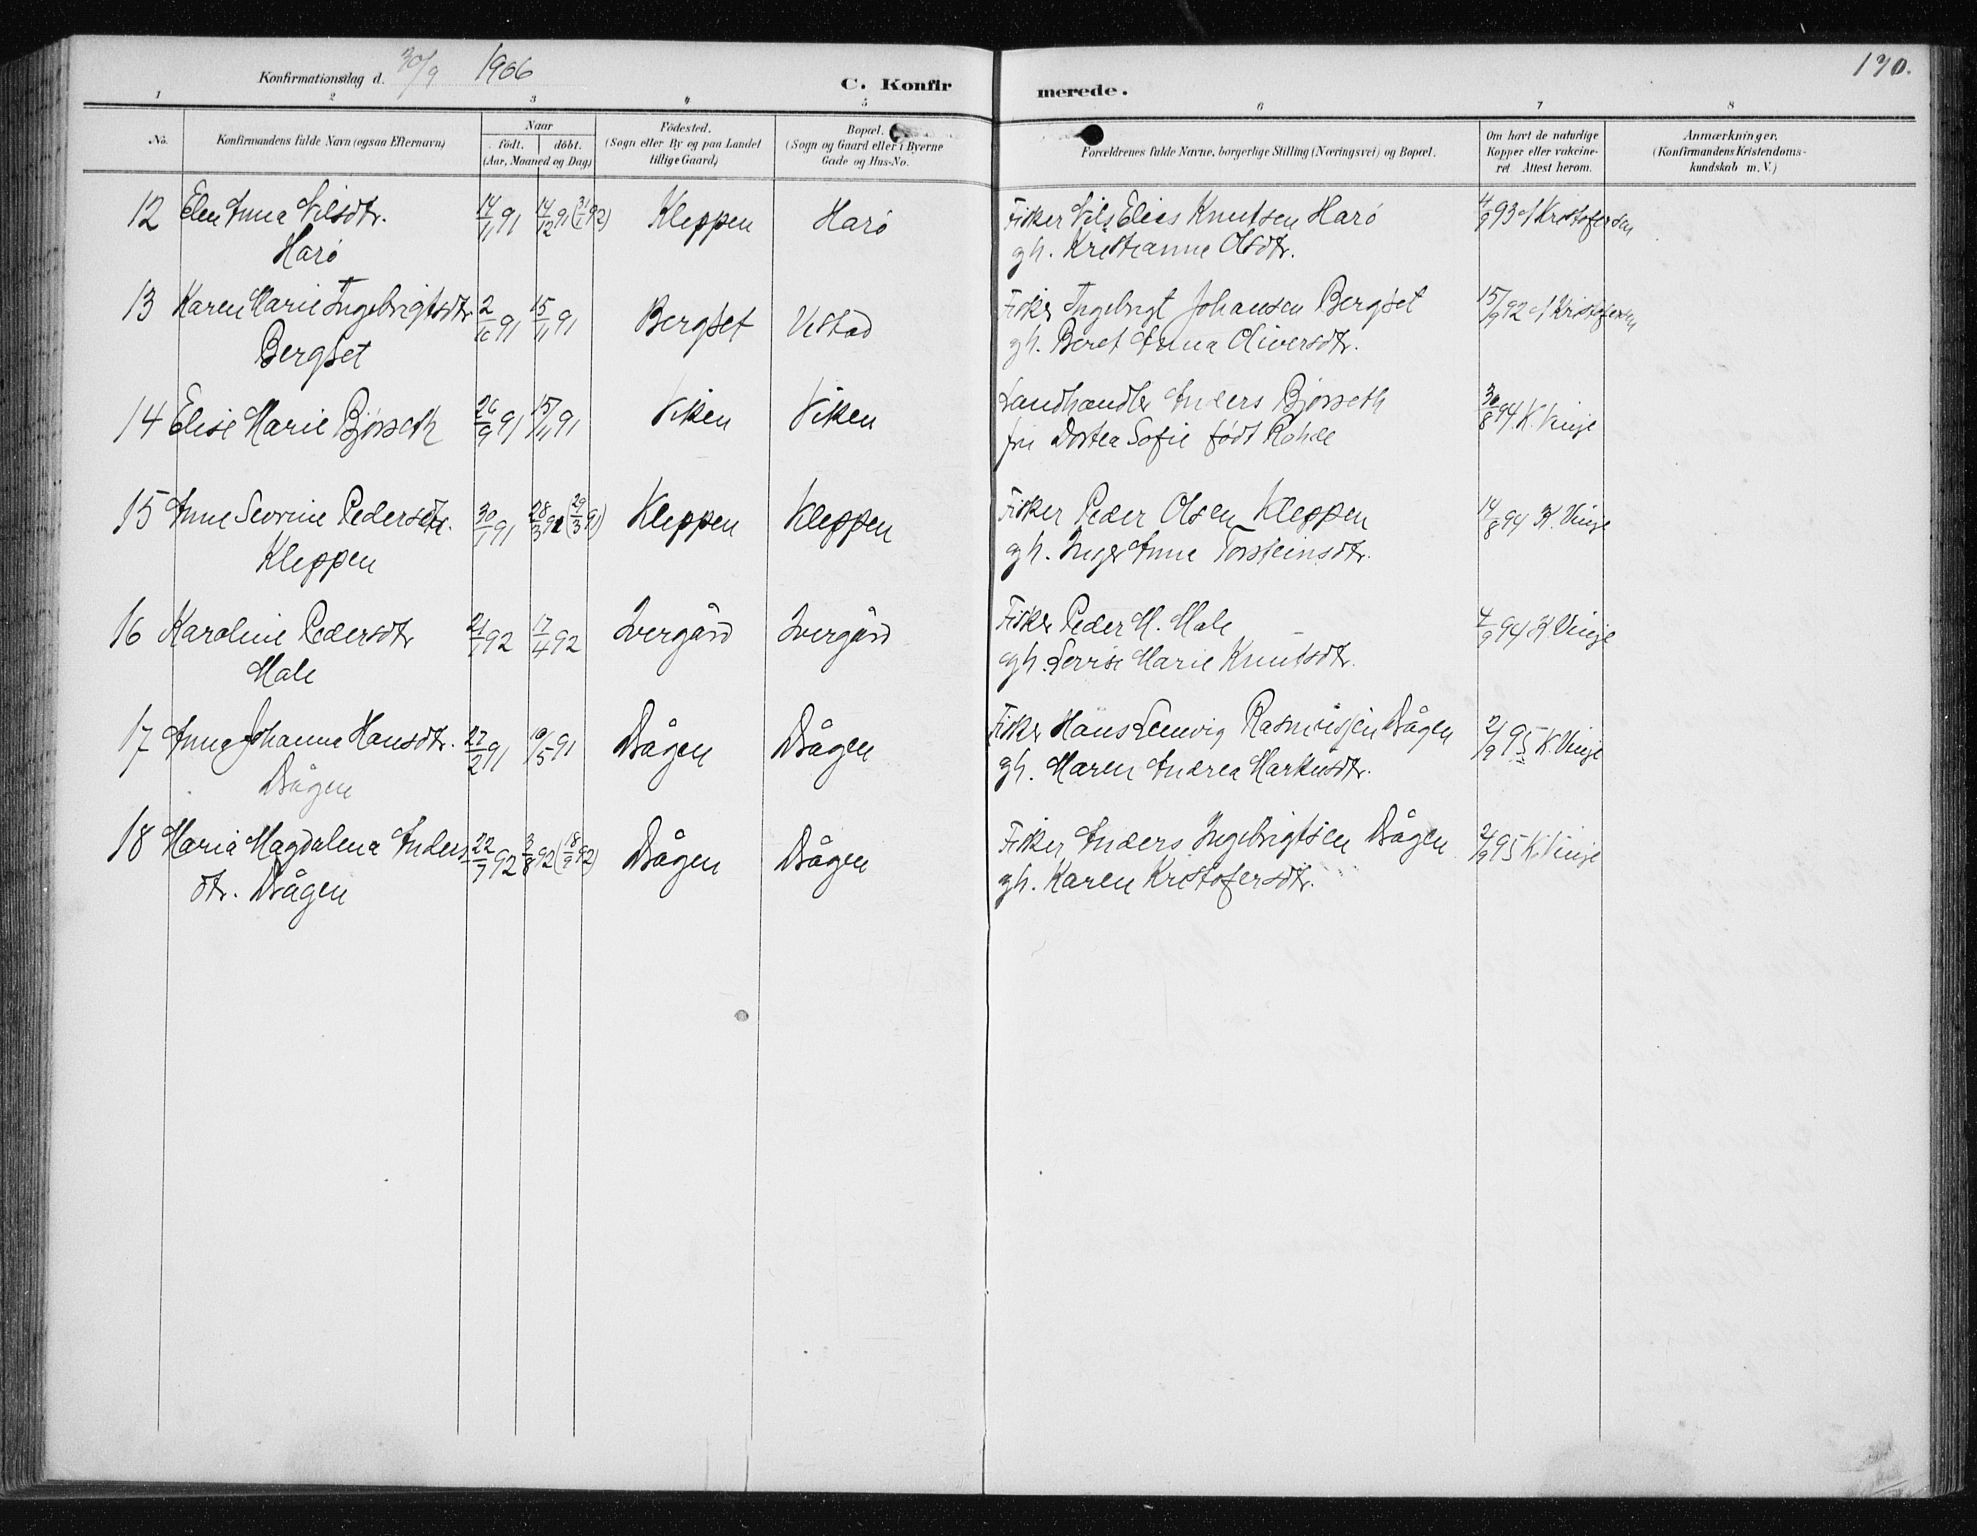 Konfirmationsdag d. 30/9 1906
C. Konfir merede.
130.
1 2 3 4 5 6 7 8
No. Konfirmandens fulde Navn (ogsaa Efternavn) Naar födt. döbt. (Aar, Maaned og Dag) Födested. (Sogn eller By og paa Landet tillige Gaard) Bopæl. (Sogn og Gaard eller i Byerne Gade og Hus-No. Forældrenes fulde Navne, borgerlige Stilling (Næringsvei) og Bopæl. Om havt de naturlige Kopper eller vakcineret Attest herom. Anmærkninger. (Konfirmandens Kristendomskundskab m. V.)
12 Elen Anna Nilsdtr. 14/11 91 14/12 91 Kleppen Harö Fisker Nils Elias Knutsen Harö 4/9 93 Kristofersen
Harö gh. Kristianne Olsdtr.
13 Karen Marie Ingebrigtsdtr 2/10 91 15/11 91 Bergset Vestad Fisker Ingebrigt Johansen Bergset 15/9 92 Kristofersen
Bergset gh. Beret Anna Oliversdtr.
14 Elise Marie Bjørseth 26/9 91 15/11 91 Viken Viken Landhandler Anders Bjørseth 30/8 94 K. Vinje
fru Dortea Sofie født Rohde
15 Anne Sevrine Pedersdtr. 30/1 91 28/3 91 (29/3 91) Kleppen Kleppen Fisker Peder Olsen Kleppen 14/8 94 K. Vinje
Kleppen gh. Inger Anne Torsteinsdtr.
16 Karoline Pedersdtr 21/1 92 17/4 92 Ivergård Ivergård Fisker Peder M. Male 4/9 94 K Vinje
Male gh. Lovise Marie Knutsdtr.
17 Anne Johanne Hansdtr. 27/2 91 10/5 91 Drågen Drågen Fisker Hans Lemvig Rasmussen Drågen 2/9 95 K. Vinje
Drågen gh. Maren Andrea Markusdtr.
18 Maria Magdalena Anders 22/7 92 3/8 92 (18/9 92) Drågen Drågen Fisker Anders Ingebrigtsen Drågen 2/9 95 K. Vinje
dtr. Drågen gh. Karen Kristofersdtr.